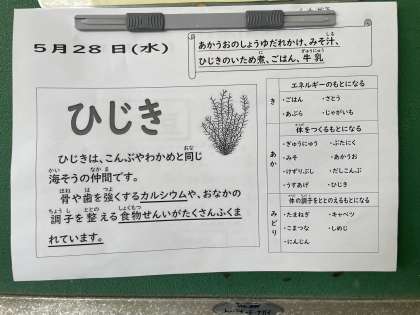 5月28日(水)
あかうおのしょうゆだれかけ、みそ汁、
ひじきのいため煮、ごはん、牛乳
ひじき
ひじきは、こんぶやわかめと同じ
海そうの仲間です。
骨や歯を強くするカルシウムや、おなかの
調子を整える食物せんいがたくさんふくま
れています。
き
エネルギーのもとになる
・ごはん ・さとう
・あぶら ・じゃがいも
あか
体をつくるもとになる
・ぎゅうにゅう ・ぶたにく
・みそ ・あかうお
・けずりぶし ・だしこんぶ
・うすあげ ・ひじき
みどり
体の調子をととのえるもとになる
・たまねぎ ・キャベツ
・こまつな ・しめじ
・にんじん